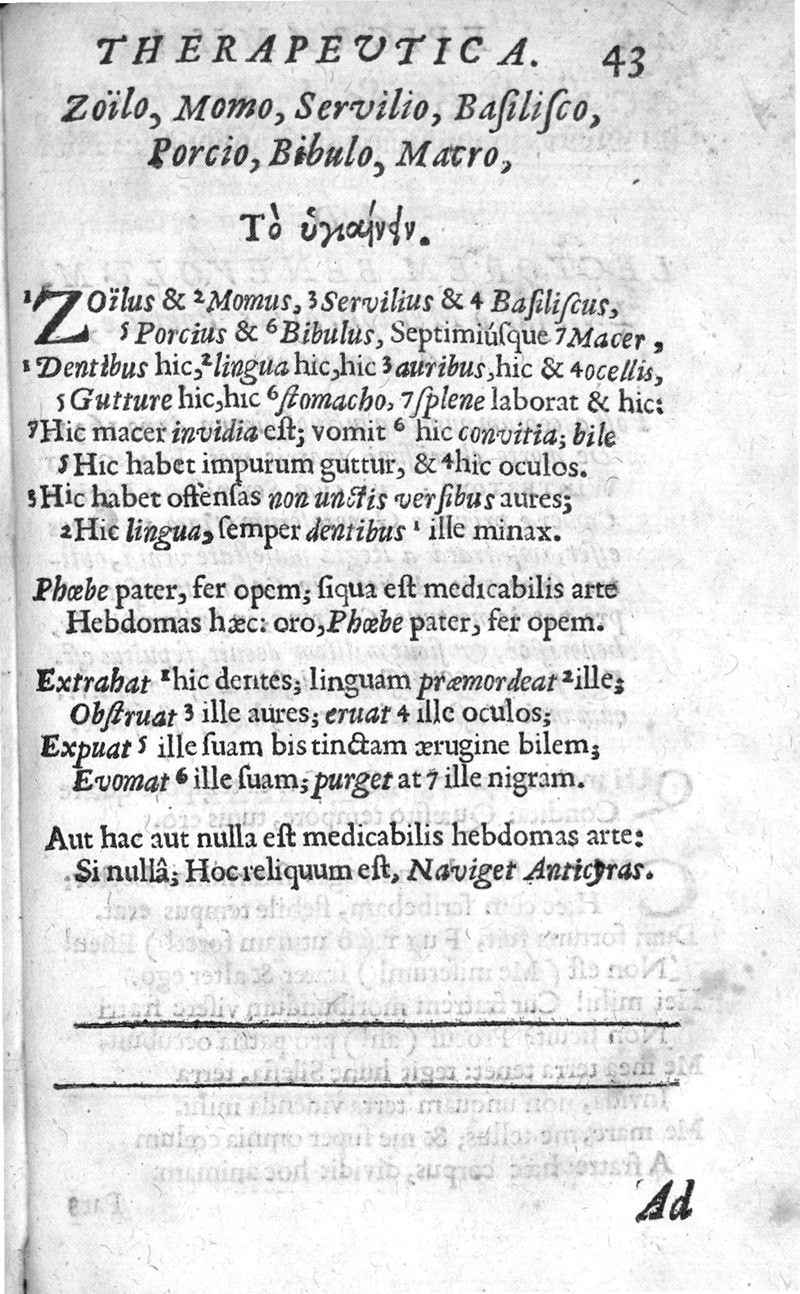 THERAPEUTICA. 43
Zoïlo, Momo, Servilio, Baſiliſco,
Porcio, Bibulo, Macro,
Τὸ ὑγιαίνειν.
1 ZOïlus & 2 Momus, 3 Servilius & 4 Baſiliſcus,
5 Porcius & 6 Bibulus, Septimiúſque 7 Macer,
1 Dentibus hic, 2 lingua hic, hic 3 auribus, hic & 4 ocellis,
5 Gutture hic, hic 6 ſtomacho, 7 ſplene laborat & hic:
7 Hic macer invidia eſt; vomit 6 hic convitia; bile
5 Hic habet impurum guttur, & 4 hic oculos.
3 Hic habet offenſas non unctis verſibus aures;
2 Hic lingua, ſemper dentibus 1 ille minax.
Phœbe pater, fer opem; ſiqua eſt medicabilis arte
Hebdomas hæc: oro, Phœbe pater, fer opem.
Extrahat 1 hic dentes; linguam præmordeat 2 ille;
Obſtruat 3 ille aures; eruat 4 ille oculos;
Expuat 5 ille ſuam bis tinctam ærugine bilem;
Evomat 6 ille ſuam; purget at 7 ille nigram.
Aut hac aut nulla eſt medicabilis hebdomas arte:
Si nullâ; Hoc reliquum eſt, Naviget Anticyras.
Ad